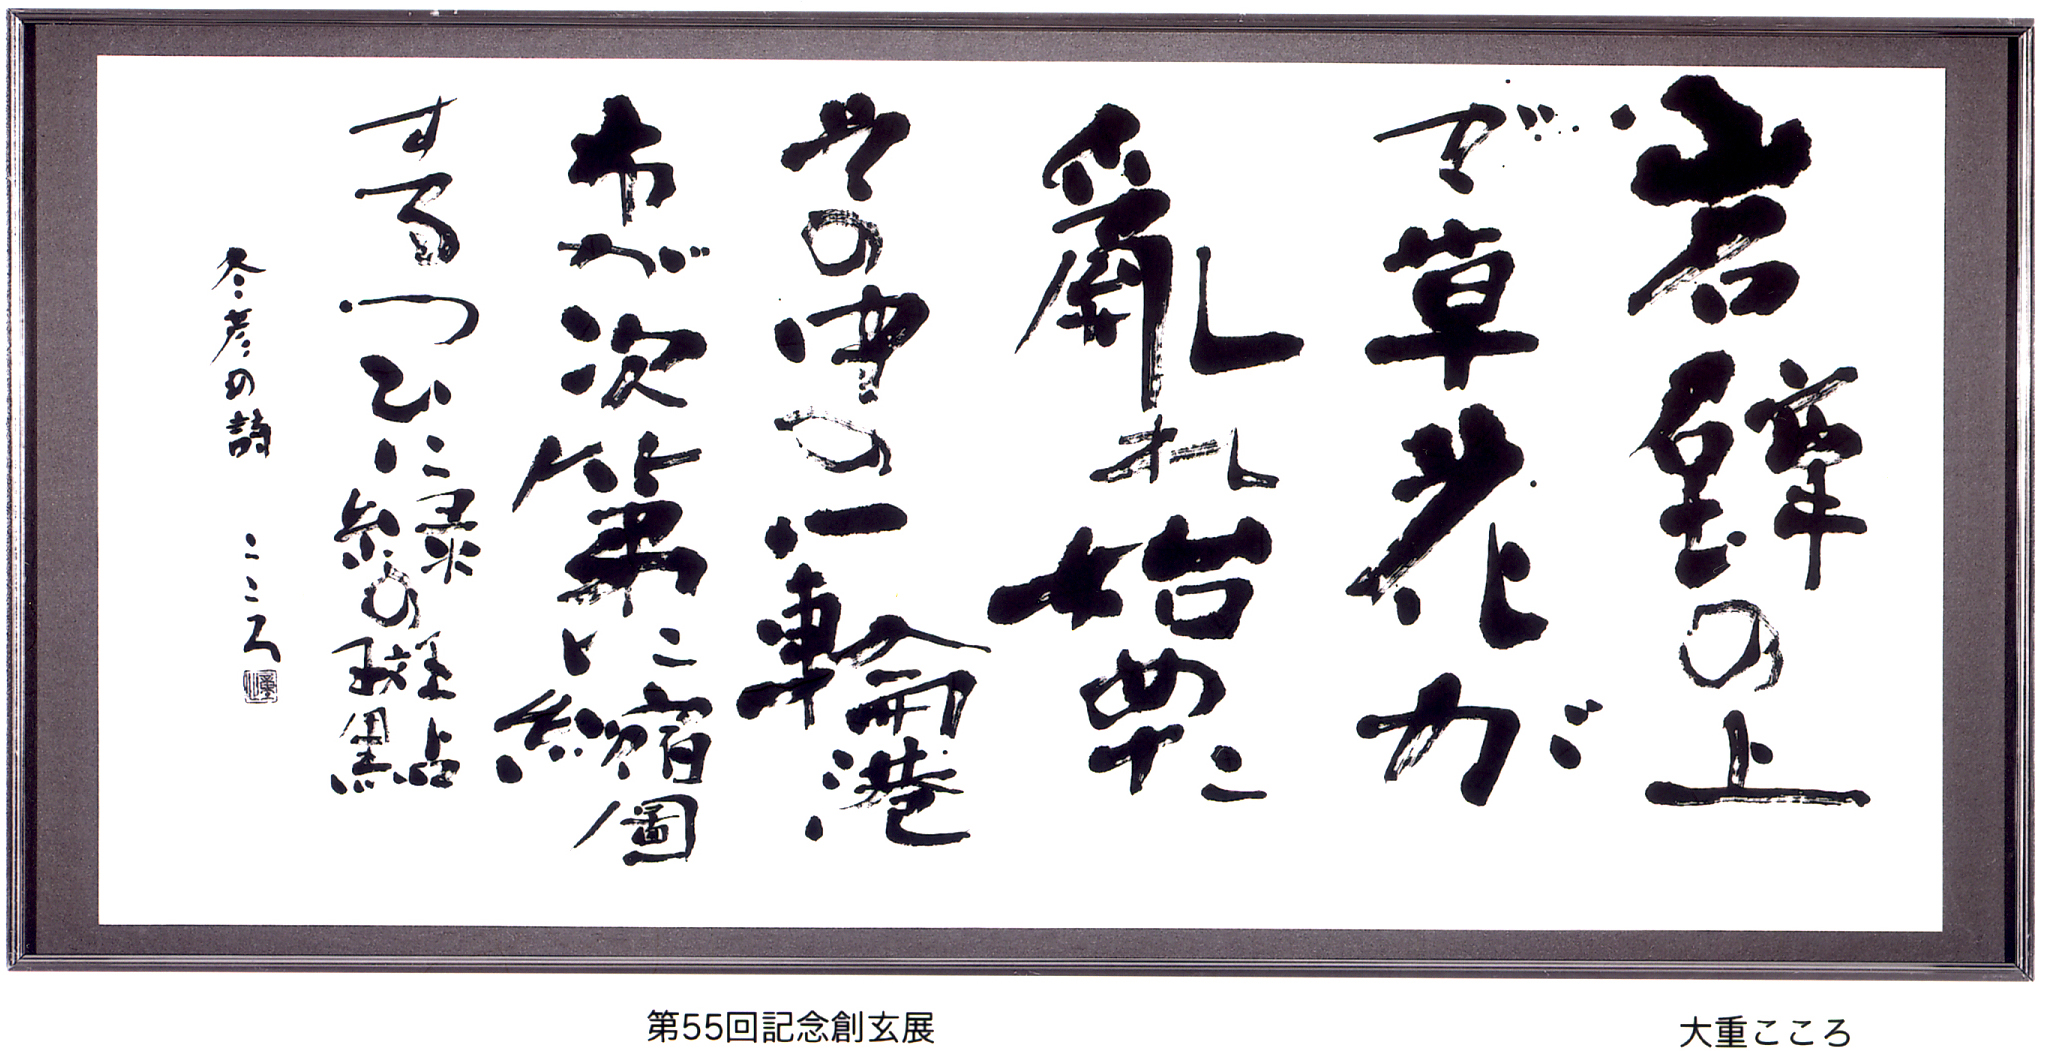 岩壁の上
で草花が
亂れ始めた
その中の一輪港
市が次第に縮圖
するつひに緑の斑點
冬彦の詩 こころ
第55回記念創玄展
大重こころ